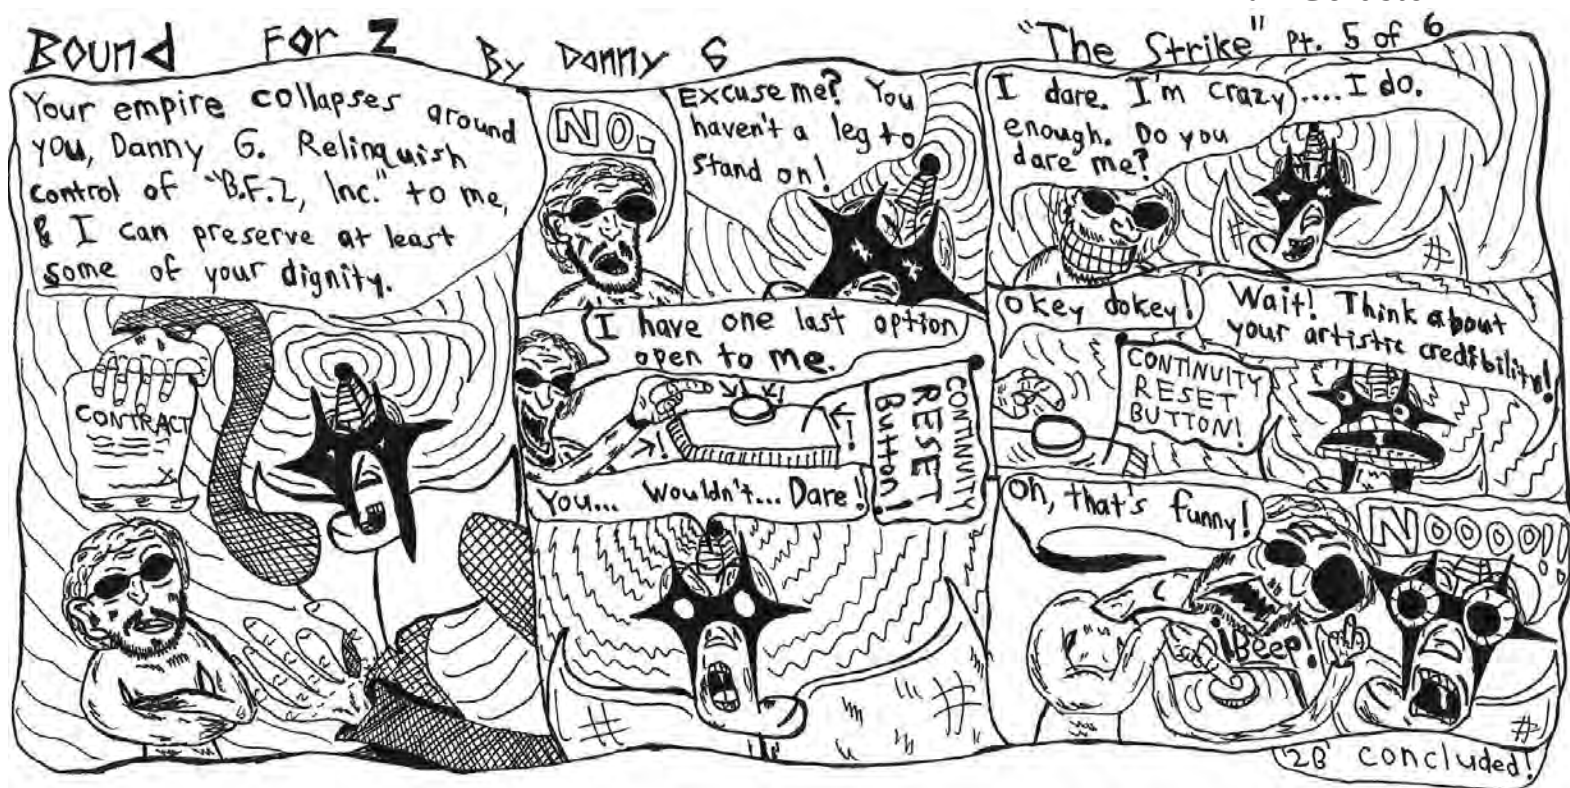 Bound For Z By Danny G "The Strike" Pt. 5 of 6
Your empire collapses around
you, Danny G. Relinquish
control of "B.F.Z, Inc." to me,
& I can preserve at least
some of your dignity.
CONTRACT
X
NO.
Excuse me? You
haven't a leg to
stand on!
I have one last option
open to me.
CONTINUITY
RESET
Button!
You... Wouldn't... Dare!
I dare. I'm crazy
enough. Do you
dare me?
....I do.
Okey dokey!
Wait! Think about
your artistic credibility!
CONTINUITY
RESET
BUTTON!
Oh, that's funny!
NOOOO!!
¡Beep!
'2B' concluded!